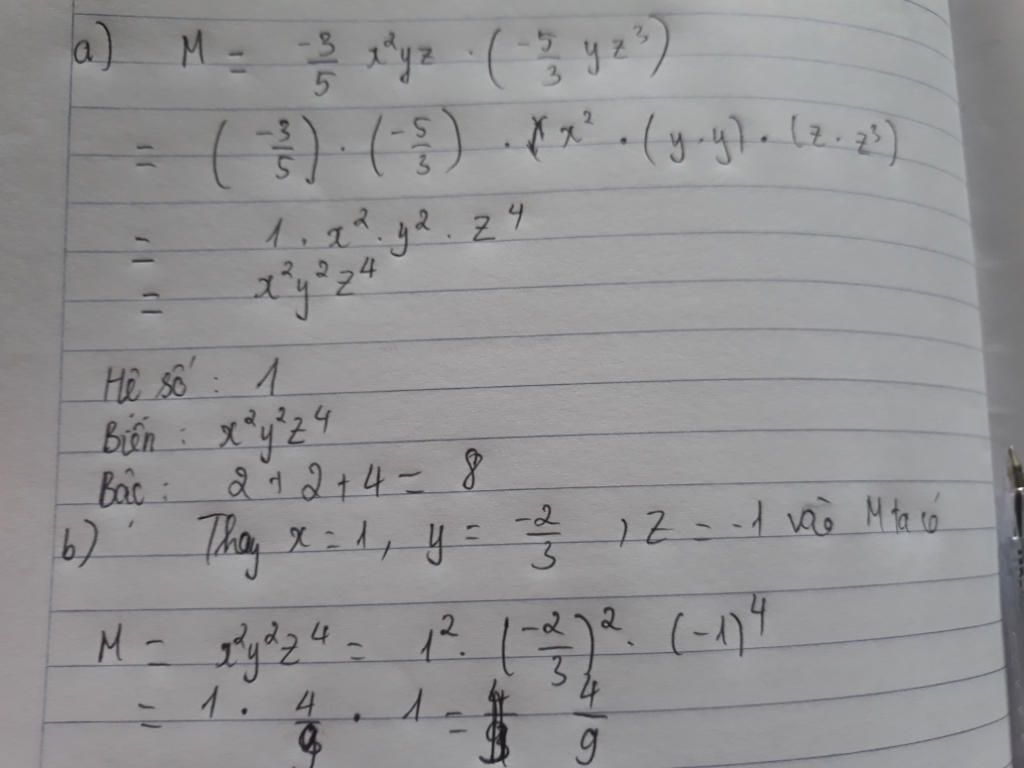 a) M = -3/5 x²yz · (-5/3 yz³)
= (-3/5) · (-5/3) · x² · (y·y) · (z·z³)
= 1 · x² · y² · z⁴
= x²y²z⁴
Hệ số : 1
Biến : x²y²z⁴
Bậc : 2 + 2 + 4 = 8
b) Thay x = 1, y = -2/3, z = -1 vào M ta có
M = x²y²z⁴ = 1² · (-2/3)² · (-1)⁴
= 1 · 4/9 · 1 = 4/9